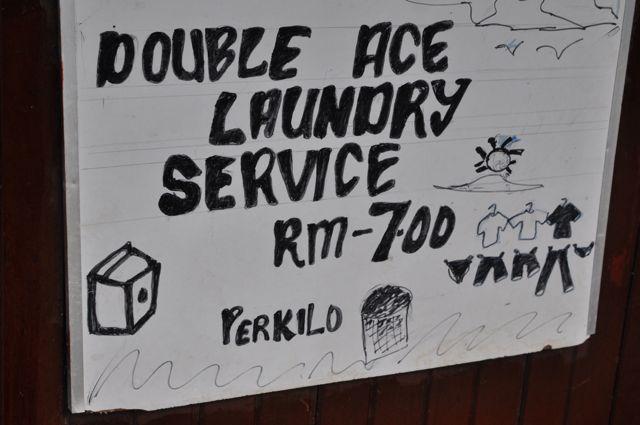 DOUBLE ACE
LAUNDRY
SERVICE
RM-7.00
PERKILO